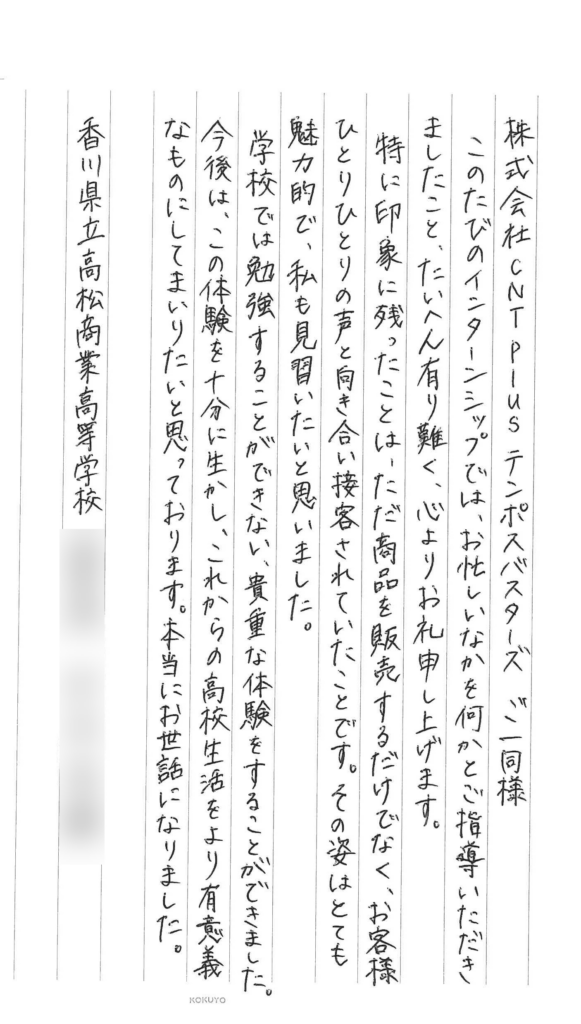 株式会社CNT plus テンポスバスターズ ご一同様
このたびのインターンシップでは、お忙しいなかを何かとご指導いただき
ましたこと、たいへん有り難く、心よりお礼申し上げます。
特に印象に残ったことは、ただ商品を販売するだけでなく、お客様
ひとりひとりの声と向き合い接客されていたことです。その姿はとても
魅力的で、私も見習いたいと思いました。
学校では勉強することができない、貴重な体験をすることができました。
今後は、この体験を十分に生かし、これからの高校生活をより有意義
なものにしてまいりたいと思っております。本当にお世話になりました。
香川県立高松商業高等学校
KOKUYO